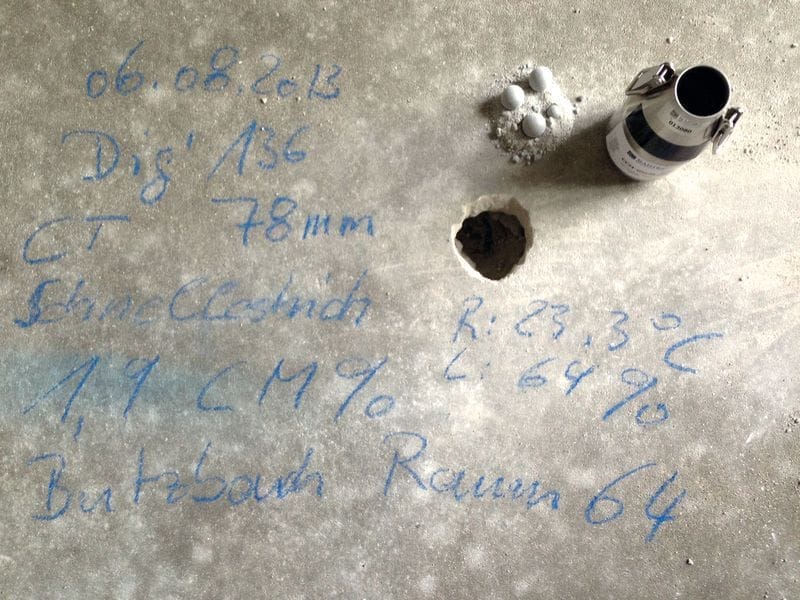 06.08.2013
Dig' 136
CT 78mm
Schnellestrich
1,9 CM%
R: 23,3°C
L: 64%
Butzbach Raum 64
013080